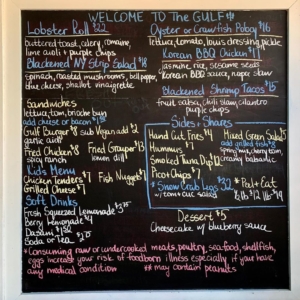 WELCOME TO The GULF
Lobster Roll $22
buttered toast, celery, romaine,
lime aioli + purple chips
Blackened NY Strip Salad $18
Spinach, roasted mushrooms, bell pepper,
blue cheese, shallot vinaigrette
Sandwiches
lettuce, tom, brioche bun
add cheese or bacon
Gulf Burger $8 sub Vegan add $2
garlic aioli
Fried Chicken $8 Fried Grouper $13
spicy ranch lemon dill
Kids Menu
Chicken Tenders $7 Fish Nuggets
Grilled Cheese $7
Soft Drinks
Fresh Squeezed Lemonade
Berry Lemonade
Dasani
Soda or Tea
Oyster or Crawfish Poboy $16
lettuce, tomato, louis dressing, pickle
Korean BBQ Chicken
Jasmine rice, sesame seeds
Korean BBQ sauce, napa slaw
Blackened Shrimp Tacos $15
fruit salsa, chili slaw, cilantro
purple chips
Sides + Shares
Hand Cut Fries $4
Hummus $7
Smoked Tuna Dip
Pico + Chips $7
Snow Crab Legs
Mixed Green Salad
add grilled fish
Spring mix, cherry tom,
creamy balsamic
* Peel + Eat
Dessert
Cheesecake w/ blueberry sauce
*Consuming raw or undercooked meats, poultry, seafood, shellfish,
eggs increase your risk of foodborn illness especially if you have
any medical condition ** may contain peanuts